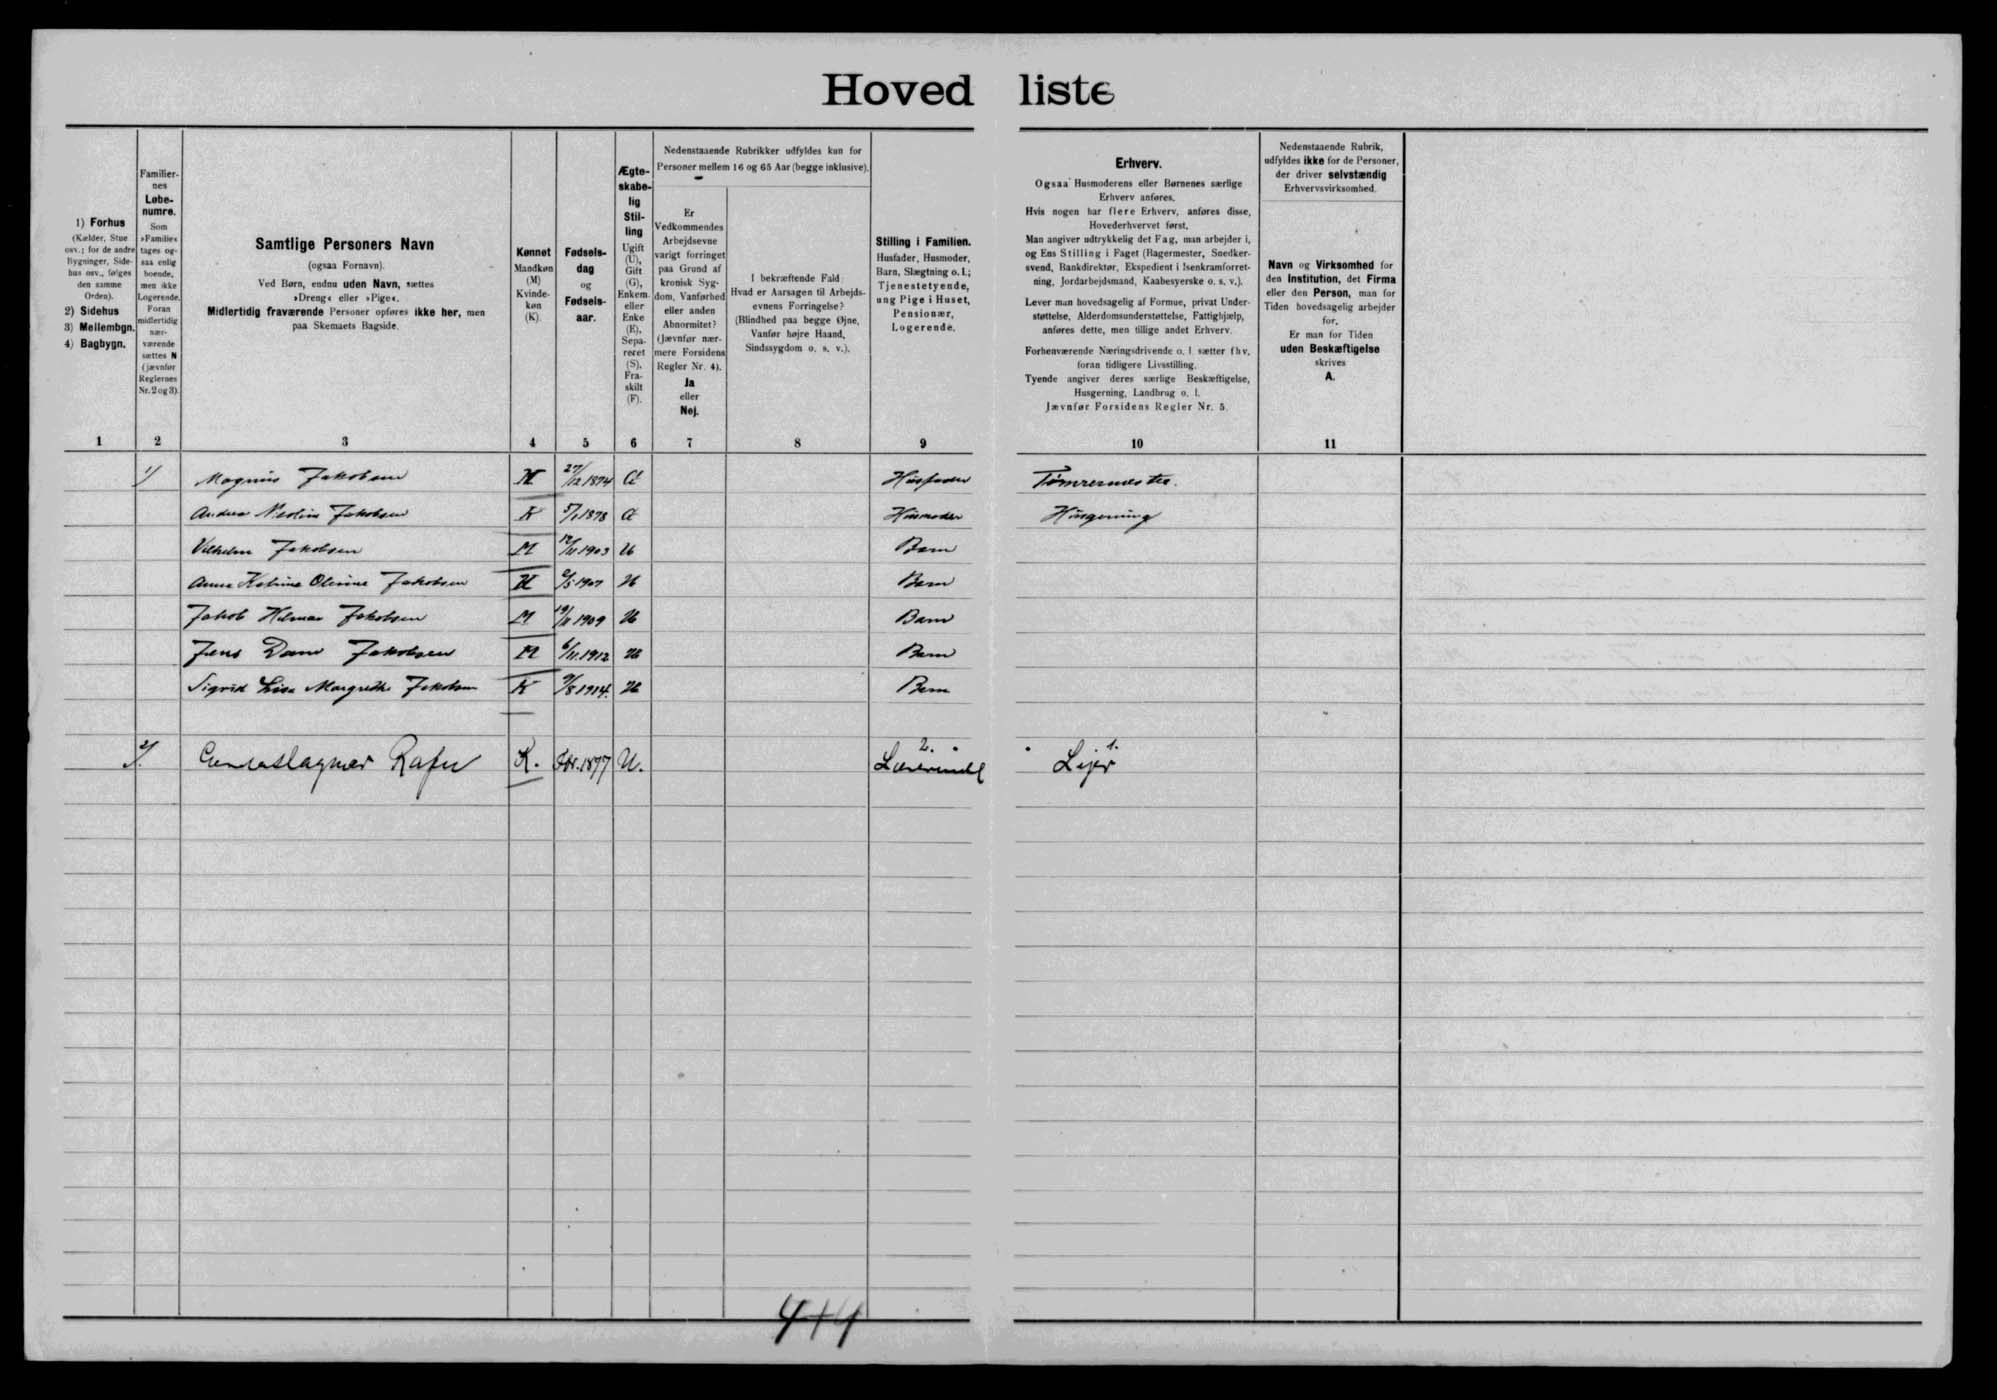 Hovedliste
1) Forhus
(Kælder, Stue
osv.; for de andre
Bygninger, Side-
hus osv., følges
den samme
Orden).
2) Sidehus
3) Mellembgn.
4) Bagbygn.
Familier-
nes
Løbe-
numre.
Som
»Familie«
tages og-
saa enlig
boende,
men ikke
Logerende.
Foran
midlertidig
nær-
værende
sættes N
(jævnfør
Reglernes
Nr. 2 og 3).
Samtlige Personers Navn
(ogsaa Fornavn).
Ved Børn, endnu uden Navn, sættes
»Dreng« eller »Pige«.
Midlertidig fraværende Personer opføres ikke her, men
paa Skemaets Bagside.
Kønnet
Mandkøn
(M)
Kvinde-
køn
(K).
Fødsels-
dag
og
Fødsels-
aar.
Ægte-
skabe-
lig
Stil-
ling
Ugift
(U),
Gift
(G),
Enkem.
eller
Enke
(E),
Sepa-
reret
(S),
Fra-
skilt
(F).
Nedenstaaende Rubrikker udfyldes kun for
Personer mellem 16 og 65 Aar (begge inklusive).
Er
Vedkommendes
Arbejdsevne
varigt forringet
paa Grund af
kronisk Syg-
dom, Vanførhed
eller anden
Abnormitet?
(Jævnfør nær-
mere Forsidens
Regler Nr. 4).
Ja
eller
Nej.
I bekræftende Fald:
Hvad er Aarsagen til Arbejds-
evnens Forringelse?
(Blindhed paa begge Øjne,
Vanfør højre Haand,
Sindssygdom o. s. v.).
Stilling i Familien.
Husfader, Husmoder,
Barn, Slægtning o. l.;
Tjenestetyende,
ung Pige i Huset,
Pensionær,
Logerende.
Erhverv.
Ogsaa Husmoderens eller Børnenes særlige
Erhverv anføres.
Hvis nogen har flere Erhverv, anføres disse,
Hovederhvervet først.
Man angiver udtrykkelig det Fag, man arbejder i,
og Ens Stilling i Faget (Bagermester, Snedker-
svend, Bankdirektør, Ekspedient i Isenkramforret-
ning, Jordarbejdsmand, Kaabesyerske o. s. v.).
Lever man hovedsagelig af Formue, privat Under-
støttelse, Alderdomsunderstøttelse, Fattighjælp,
anføres dette, men tillige andet Erhverv.
Forhenværende Næringsdrivende o. l. sætter fhv.
foran tidligere Livsstilling.
Tyende angiver deres særlige Beskæftigelse,
Husgerning, Landbrug o. l.
Jævnfør Forsidens Regler Nr. 5.
Nedenstaaende Rubrik,
udfyldes ikke for de Personer,
der driver selvstændig
Erhvervsvirksomhed.
Navn og Virksomhed for
den Institution, det Firma
eller den Person, man for
Tiden hovedsagelig arbejder
for.
Er man for Tiden
uden Beskæftigelse
skrives
A.
1 2 3 4 5 6 7 8 9 10 11
1/ Magnus Jakobsen M 27/12 1874 G Husfader Tømrermester.
Andrea Jakobsen K 5/1 1878 G Husmoder Husgerning
Vilhelm Jakobsen M 12/11 1903 U Barn
Anna Katrine Olevine Jakobsen K 1907 U Barn
Jakob Hilmar Jakobsen M 19/11 1909 U Barn
Jens Dam Jakobsen M 6/11 1912 U Barn
Sigrid Lisa Margrethe Jakobsen K 9/8 1914. U Barn
2/ Rafn K. 1877 U. 2. Lærerinde 1. Lejer
414